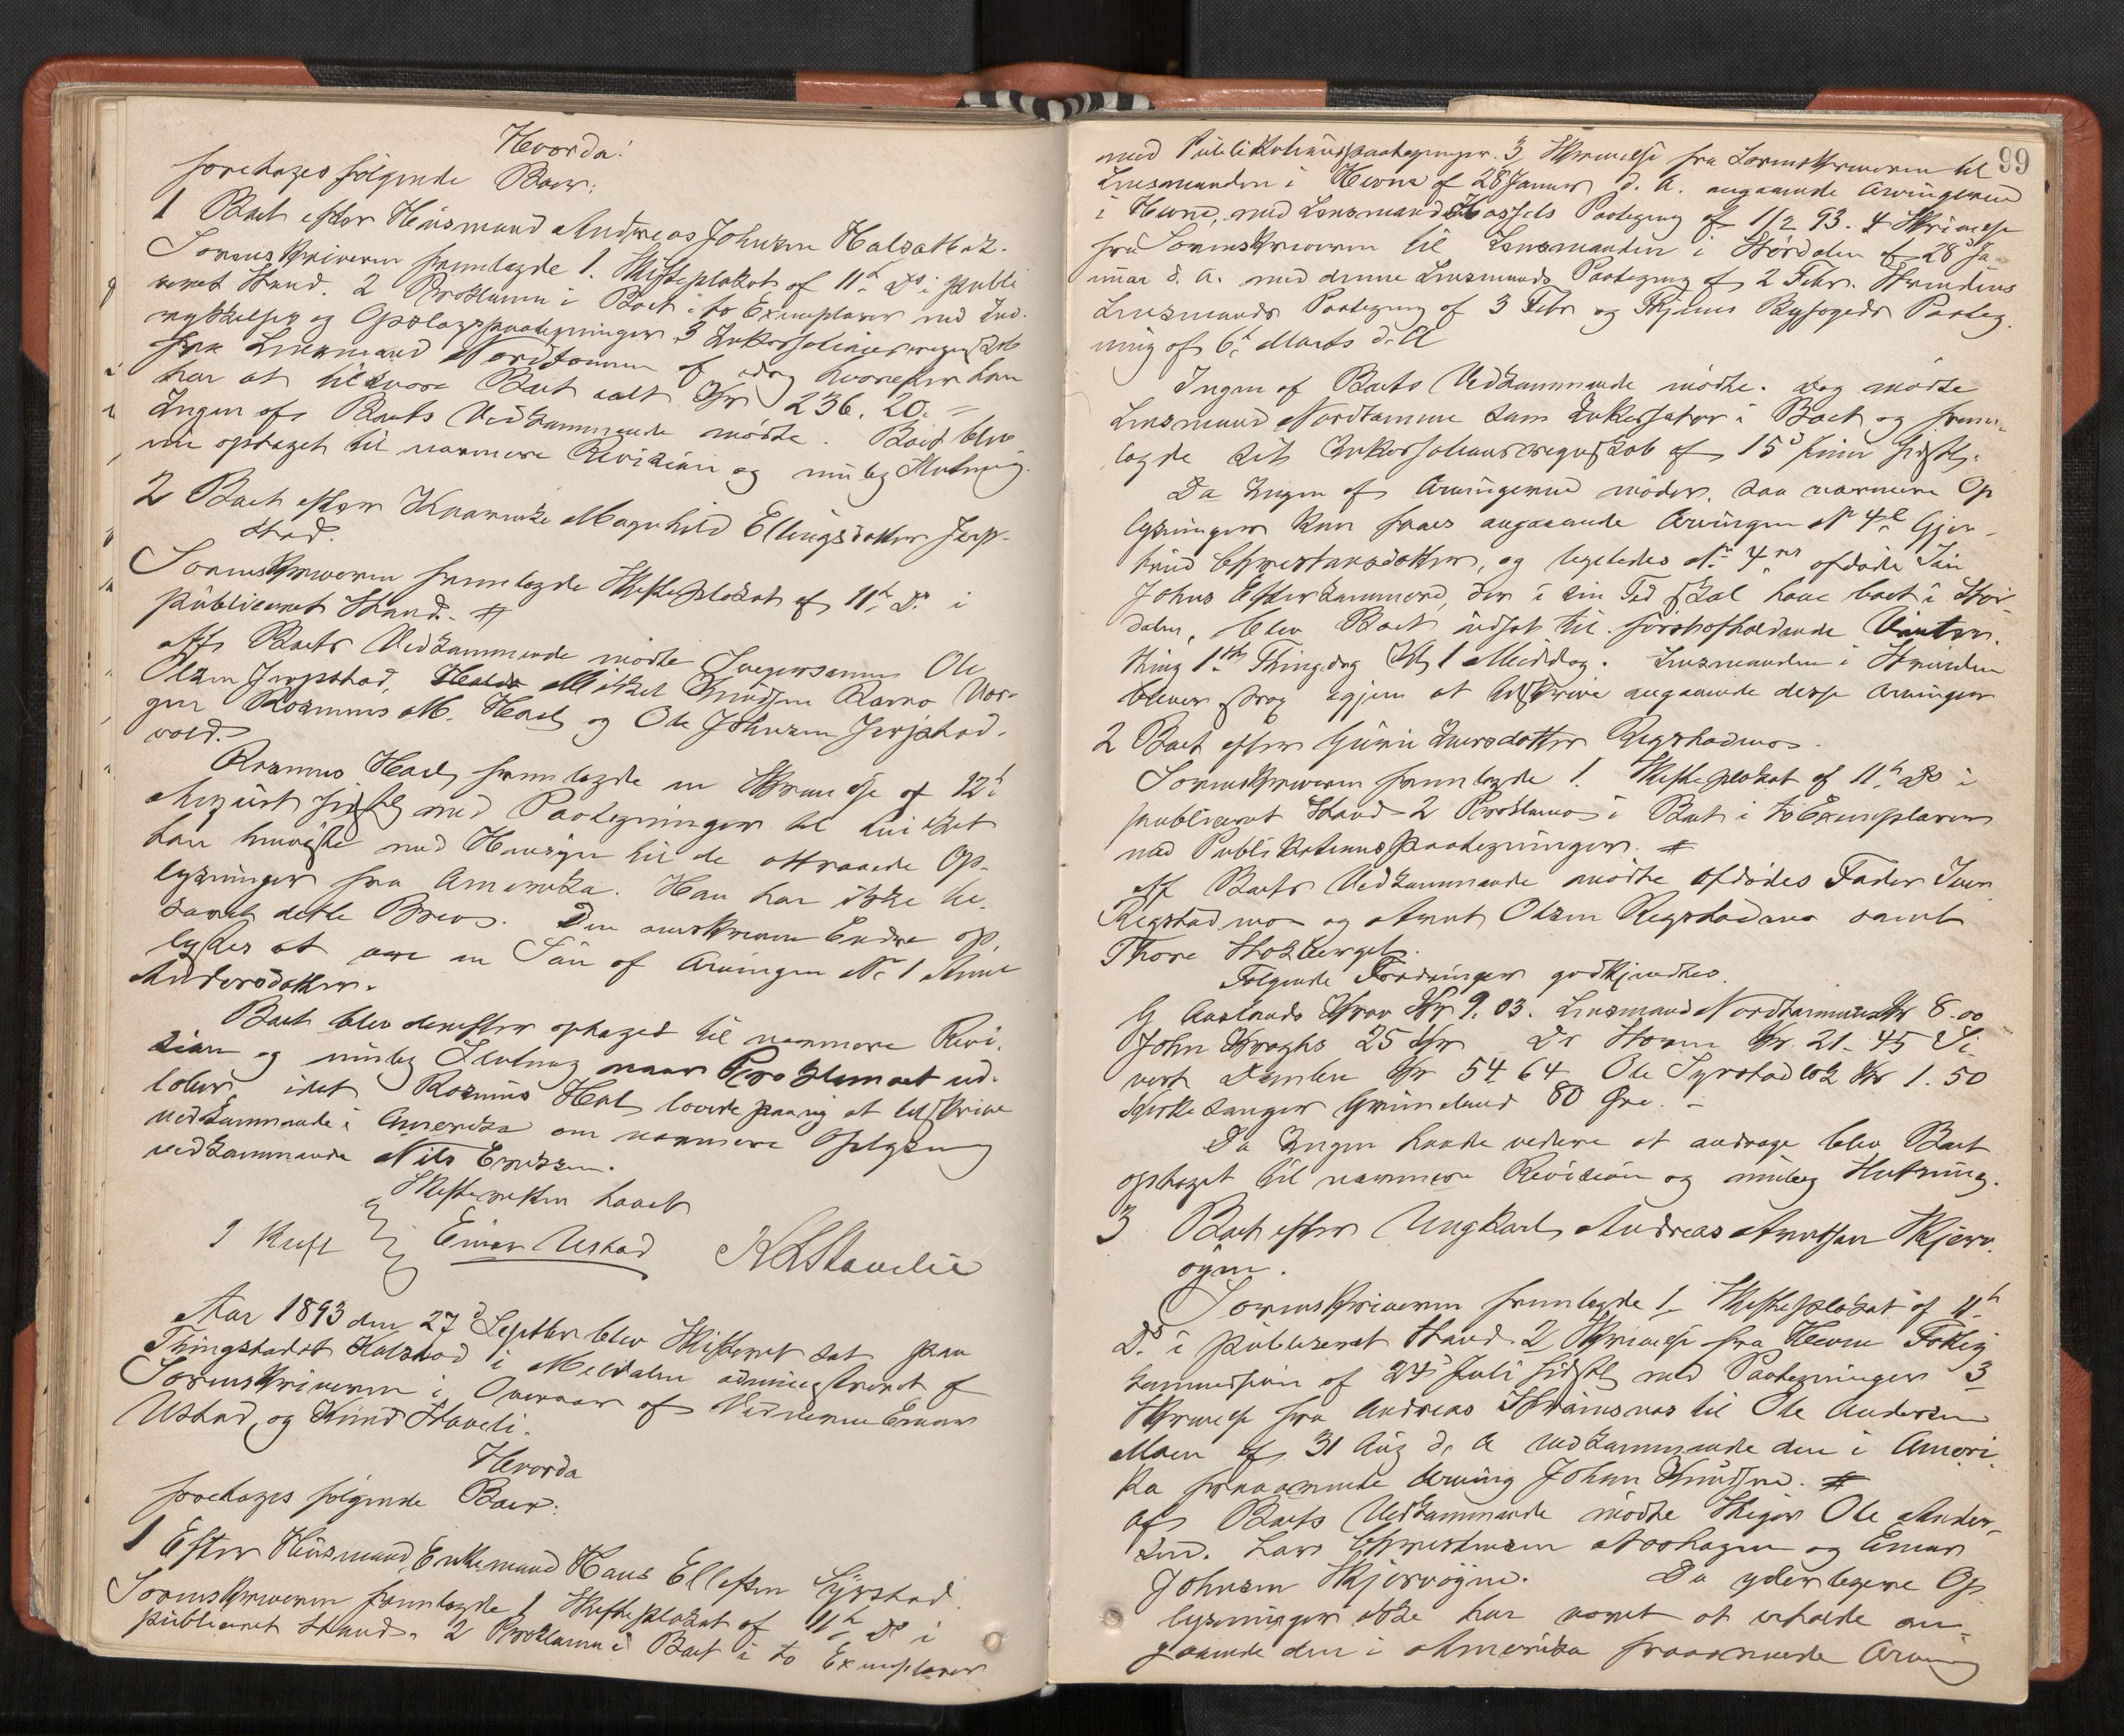 Hvorda!
foretages følgende Boer:
1 Boet efter Husmand Andreas Johnsen
Sorenskriveren fremlagde 1. Skifteplakat af 11te Ds i publi
ceret Stand. 2 Proklama i Boet i to Exemplarer med Ind-
rykkelser og Opslagspaategninger 3 Inkassationsregnskab
fra Lensmand Nordtømme af idag hvorefter han
har at tilsvare Boet ialt Kr 236.20. =
Ingen af Boets Vedkommende mødte. Boet blev
nu optaget til nærmere Revision og mulig Slutning.
2 Boet efter Magnhild Ellingsdatter Jerp-
stad.
Sorenskriveren fremlagde Skifteplakat af 11te Ds i
publiceret Stand. #
Af Boets Vedkommende mødte Svigersønnen Ole
Olsen Jerpstad, Mikkel Knudsen
Rasmus M. Hoel og Ole Johnsen Jerpstad-
vold.
Rasmus Hoel fremlagde en Skrivelse af 12te
August sidstl med Paategninger til hvilket
han henviste med Hensyn til de attraaede Op-
lysninger fra Amerika. Han har ikke be-
svaret dette Brev. Den omskrevne Endre op-
lystes at være en Søn af Arvingen No 1 Anne
Andersdatter.
Boet blev derefter optaget til nærmere Revi-
sion og mulig Slutning naar Proklamaet ud-
løber, idet Rasmus Hoel lovede paa ny at tilskrive
vedkommende i Amerika om nærmere Oplysning
vedkommende Nils Endresen.
Skifteretten hævet
Einar Ustad K L Staveli
Aar 1893 den 27d Septbr blev Skifteret sat paa
Thingstedet Kalstad i Meldalen administreret af
Sorenskriveren i Overvær af Vidnerne Einar
Ustad, og Knud Staveli.
Hvorda
foretages følgende Boer:
1 Efter Husmand, Enkemand Hans Ellefsen Syrstad.
Sorenskriveren fremlagde 1 Skifteplakat af 11te Ds i
publiceret Stand. 2 Proklama i Boet i to Exemplarer
99
med Publikationspaategninger. 3 Skrivelse fra Sorenskriveren til
Lensmanden i Hevne af 28 Januar d. A. angaaende Arvingerne
i Hevne, med Lensmand Hassels Paategning af 1/2 93. 4 Skrivelse
fra Sorenskriveren til Lensmanden i Størdalen af 28de Ja-
nuar d. A. med denne Lensmands Paategning af 2 Febr. Strindens
Lensmands Paategning af 3 Febr og Byfogeds Paateg-
ning af 6te Marts d. A
Ingen af Boets Vedkommende mødte. Dog mødte
Lensmand Nordtømme som Inkassator i Boet og frem-
lagde sit Inkassationsregnskab af 15de Juni sidstl.
Da Ingen af Arvingerne møder, saa nærmere Op
lysninger kan faaes angaaende Arvingen No 4 Gjer-
trud Christensdatter, og ligeledes No 4 afdøde Søn
Johns Efterkommere, der i sin Tid skal have boet i Stør-
dalen, blev Boet udsat til førstafholdende Vinter-
thing 1ste Thingdag Kl 1 Middag. Lensmanden i Strinden
bliver strax igjen at tilskrive angaaende disse Arvinger
2 Boet efter Guru Iversdatter Regstadmo.
Sorenskriveren fremlagde 1. Skifteplakat af 11te Ds i
publiceret Stand - 2 Proklama i Boet i to Exemplarer
med Publikationspaategninger. #
Af Boets Vedkommende mødte afdødes Fader Iver
Regstadmo og Arnt Olsen Regstadmo samt
Thore Stokberget.
Følgende Fordringer godkjendtes.
G Aunlands Krav Kr 9.03. Lensmand Nordtømme Kr 8.00
John Kroghs 25 Kr Dr Horn Kr. 21-45 Si-
vert Kr 54.64 Ole Syrstad Kr 1.50
Kirkesanger Grimelund 80 Øre. -
Da Ingen havde videre at andrage blev Boet
optaget til nærmere Revision og mulig Slutning.
3 Boet efter Ungkarl Andreas Arntsen Skjerv-
øyen.
Sorenskriveren fremlagde 1. Skifteplakat af 11te
Ds i publiceret Stand. 2 Skrivelse fra Hevne Fattig
kommission af 24de Juli sidstl med Paategninger 3
Skrivelse fra Andreas til Ole Andersen
Moen af 31 Aug d. A vedkommende den i Ameri-
ka fraværende Arving Johan Knudsen. #
Af Boets Vedkommende mødte Ole Ander-
sen. Lars Christensen og Einar
Johnsen Skjervøyen. Da yderligere Op
lysninger ikke har været at erholde an-
gaaende den i Amerika fraværende Arving